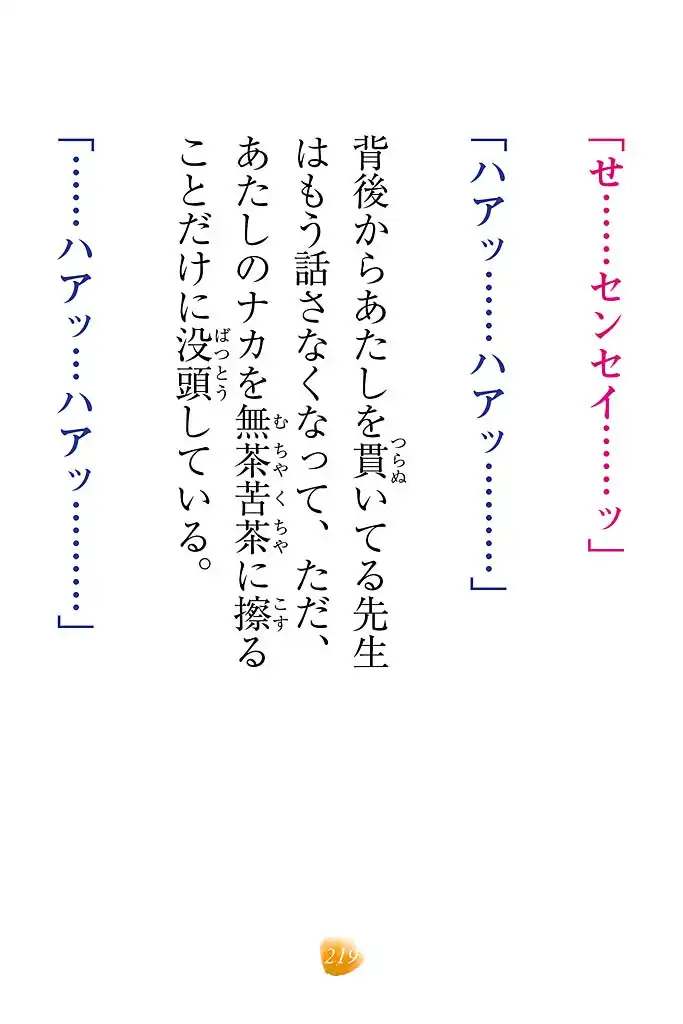 「せ……センセイ……ッ」
「ハアッ……ハアッ………」
背後からあたしを貫いてる先生
はもう話さなくなって、ただ、
あたしのナカを無茶苦茶に擦る
ことだけに没頭している。
「……ハアッ…ハアッ………」
219